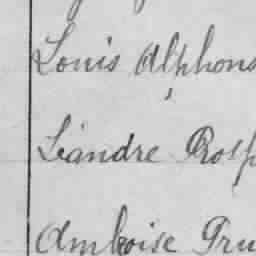 Louis Alphons
Léandre Prosp
Ambroise Gru